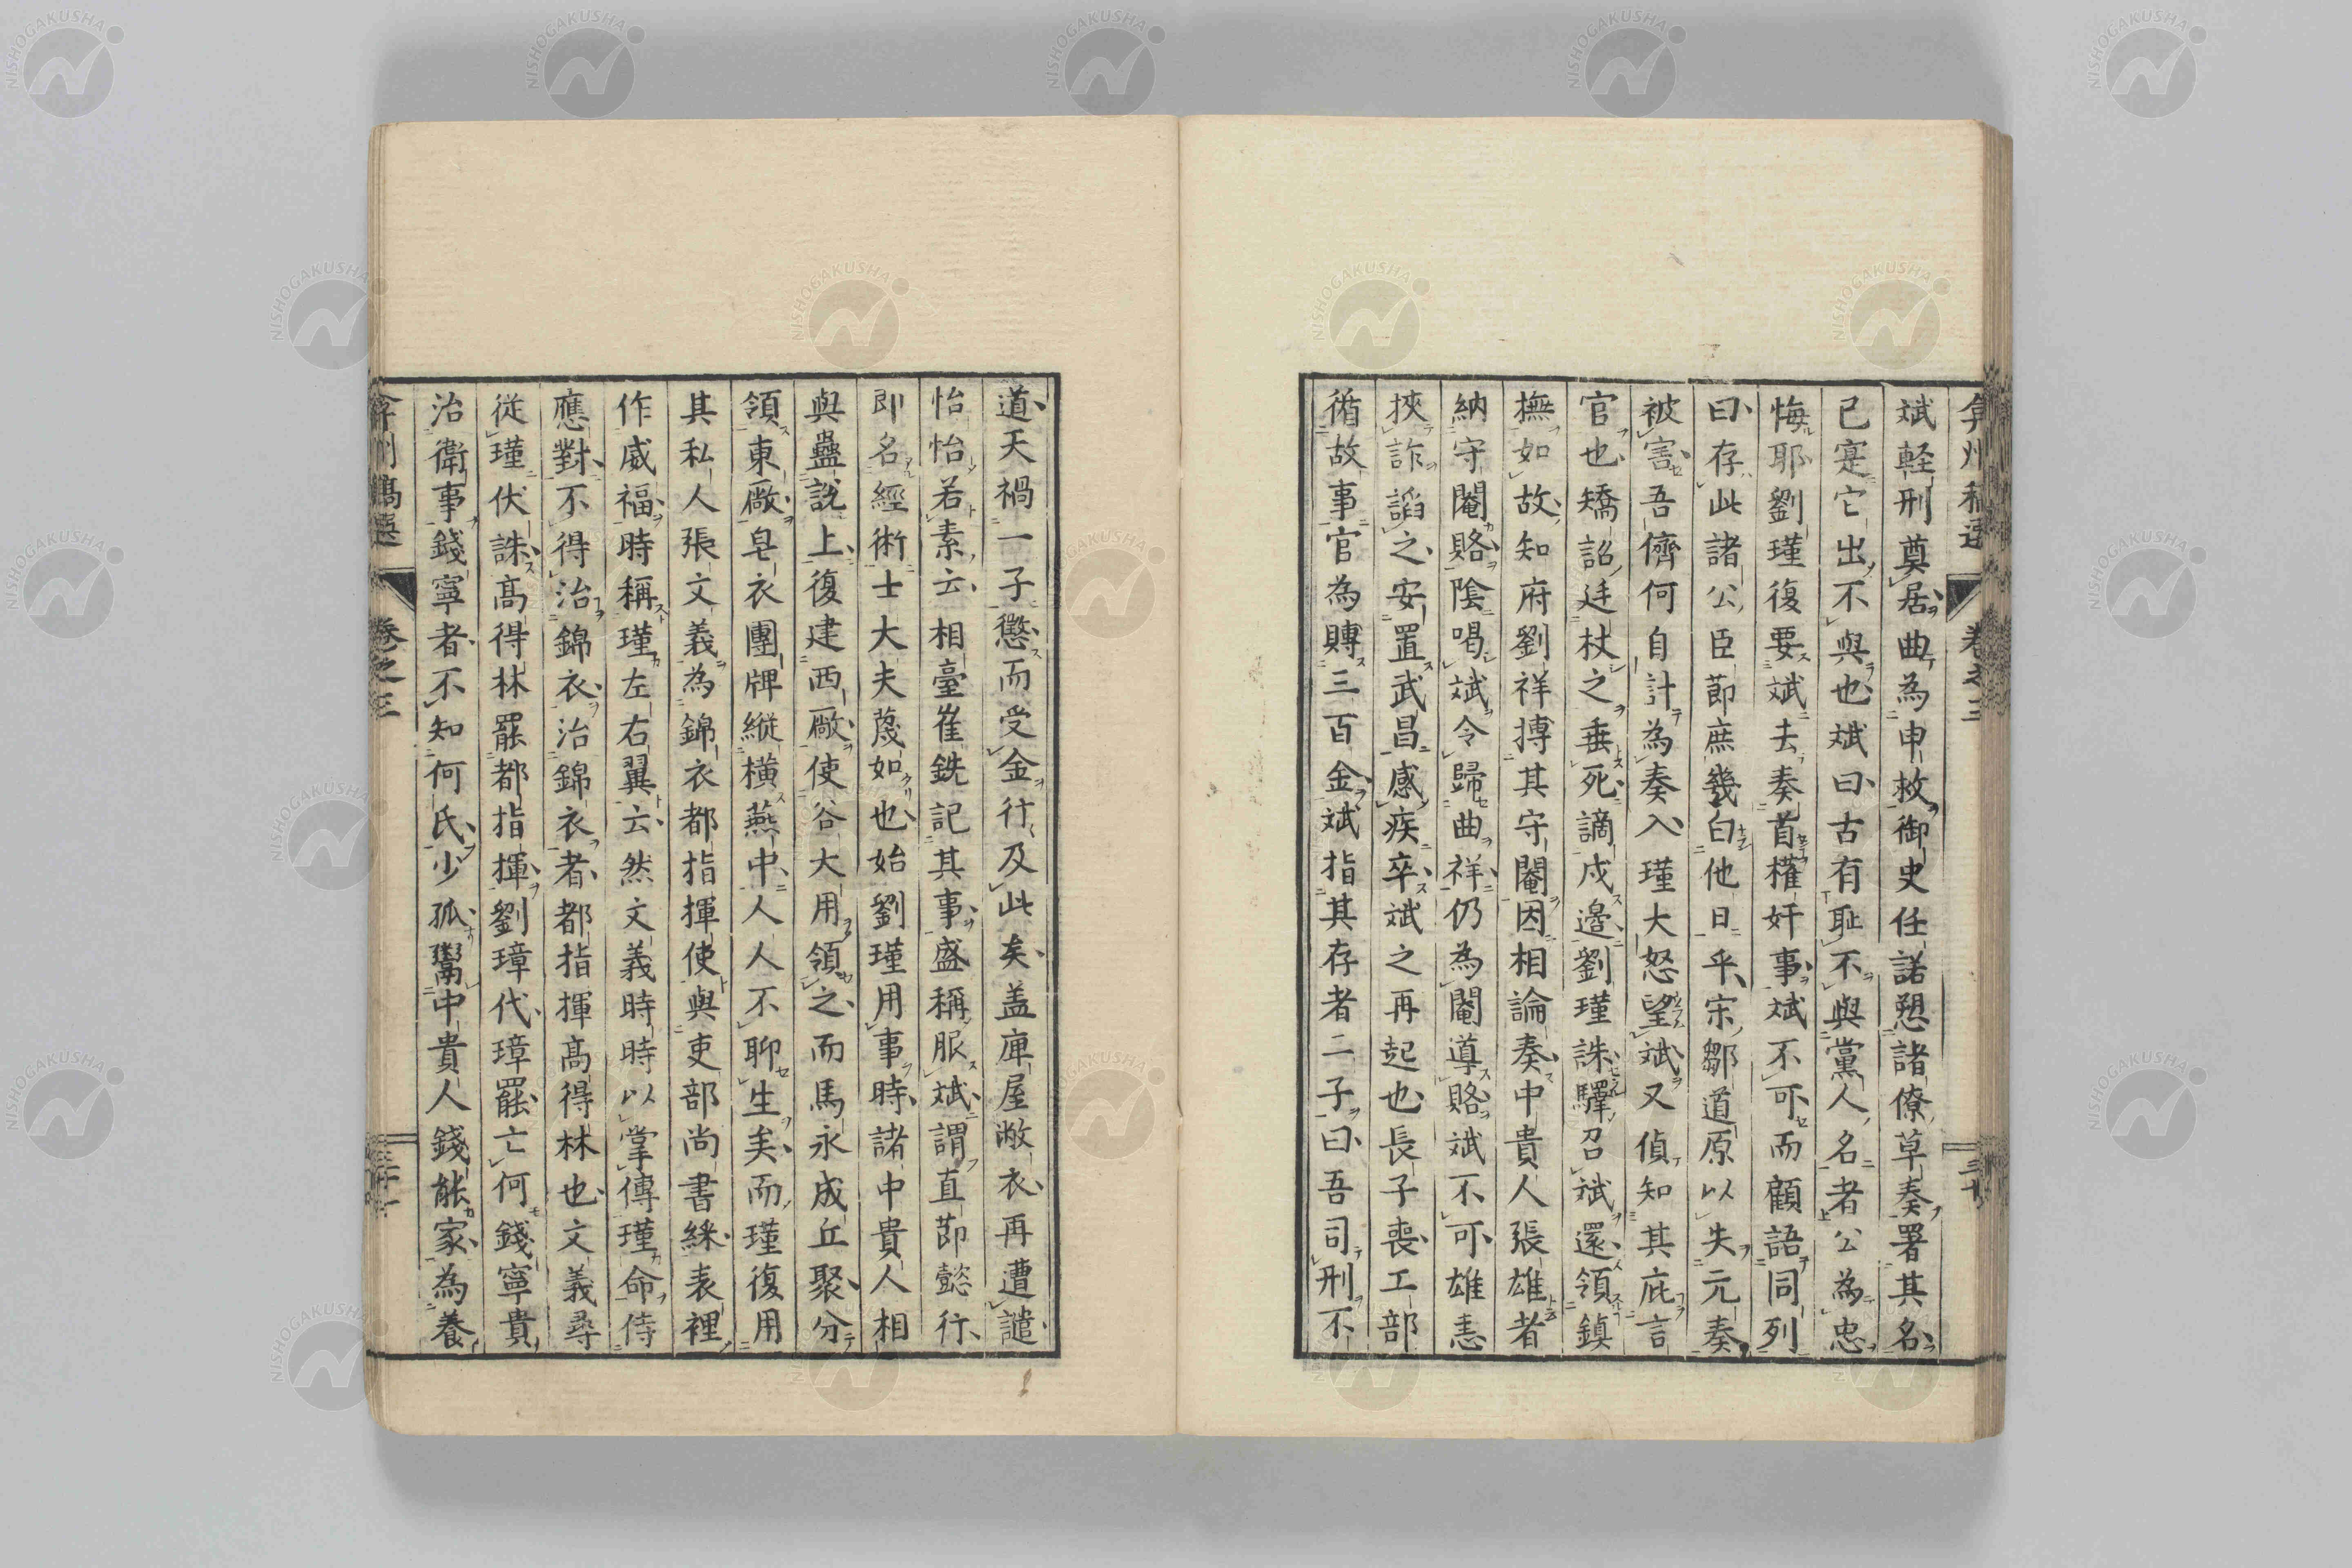 弇州稿選 卷之三 三十
斌軽刑奠居曲為申救御史任諾愬諸僚草奏署其名
已寔它出不與也斌曰古有耻不與黨人名者公為忠
悔耶劉瑾復要斌去奏首權奸事斌不可而顧語同列
曰存此諸公臣莭庶幾白他日乎宋鄒道原以失元奏
被害吾儕何自計為奏入瑾大怒望斌又偵知其庇言
官也矯詔廷杖之垂死謫戍邊劉瑾誅驛召斌還領鎮
撫如故知府劉祥摶其守閹因相論奏中貴人張雄者
納守閹賂陰喝斌令歸曲祥仍為閹導賂斌不可雄恚
挾詐謟之安置武昌感疾卒斌之再起也長子喪工部
循故事官為賻三百金斌指其存者二子曰吾司刑不
道天禍一子懲而受金行及此矣盖庳屋敝衣再遭譴
怡怡若素云相臺崔銑記其事盛稱服斌謂直莭懿行
即名經術士大夫蔑如也始劉瑾用事時諸中貴人相
與蠱說上復建西厰使谷大用領之而馬永成丘聚分
領東厰皂衣團牌縱橫燕中人人不聊生矣而瑾復用
其私人張文義為錦衣都指揮使與吏部尚書綵表裡
作威福時稱瑾左右翼云然文義時時以掌傳瑾命侍
應對不得治錦衣治錦衣者都指揮髙得林也文義尋
從瑾伏誅髙得林罷都指揮劉璋代璋罷亡何錢寧貴
治衛事錢寧者不知何氏少孤鬻中貴人錢能家為養
弇州稿選 卷之三